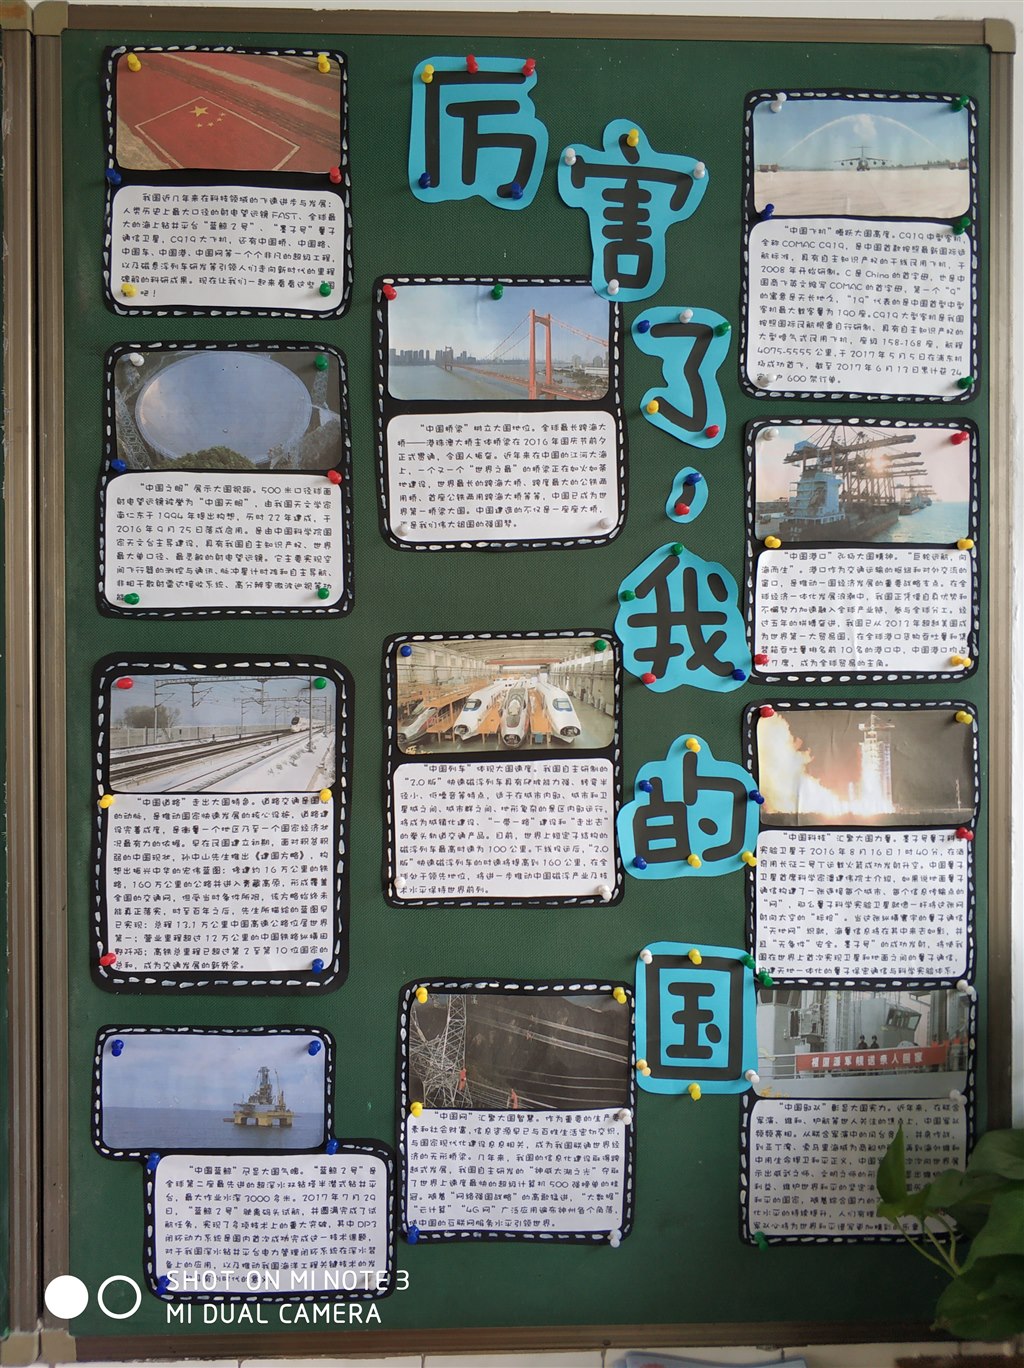 厉
害
了
，
我
的
国
我国近几年来在科技领域的飞速进步与发展：
人类历史上最大口径的射电望远镜FAST、全球最
大的海上钻井平台“蓝鲸2号”、“墨子号”量子
通信卫星，C919大飞机，还有中国桥、中国路、
中国车、中国港、中国网等一个个非凡的超级工程，
以及磁悬浮列车研发等引领人们走向新时代的里程
碑般的科研成果。现在让我们一起来看看这些
吧！
“中国之眼”展示大国视距。500米口径球面
射电望远镜被誉为“中国天眼”，由我国天文学家
南仁东于1994年提出构想，历时22年建成，于
2016年9月25日落成启用。是由中国科学院国
家天文台主导建设，具有我国自主知识产权、世界
最大单口径、最灵敏的射电望远镜。它主要实现空
间飞行器的测控与通讯、脉冲星计时阵和自主导航、
非相干散射雷达接收系统、高分辨率微波巡视等功
“中国道路”走出大国特色。道路交通是国
的动脉，是推动国家快速发展的核心设施，道路建
设完善成度，是衡量一个地区乃至一个国家经济状
况最有力的依据。早在民国建立初期，面对积贫积
弱的中国现状，孙中山先生推出《建国方略》，构
想出振兴中华的宏伟蓝图：修建约16万公里的铁
路，160万公里的公路并进入青藏高原，形成覆盖
全国的交通网，但受当时条件所限，该方略始终未
能真正落实，时至百年之后，先生所描绘的蓝图早
已实现：总程13.1万公里中国高速公路位居世界
第一；营业里程超过12万公里的中国铁路纵横田
野阡陌；高铁总里程已超过第2至第10位国家的
总和，成为交通发展的新脊梁。
“中国蓝鲸”尽显大国气魄。“蓝鲸2号”是
全球第二座最先进的超深水双钻塔半潜式钻井平
台，最大作业水深3000多米。2017年7月29
日，“蓝鲸2号”驶离码头试航，并圆满完成了试
航任务，实现了多项技术上的重大突破，其中DP3
闭环动力系统是国内首次成功完成这一技术课题，
对于我国深水钻井平台电力管理闭环系统在深水装
备上的应用，以及推动我国海洋工程关键技术的发
“中国桥梁”树立大国地位。全球最长跨海大
桥——港珠澳大桥主体桥梁在2016年国庆节前夕
正式贯通，令国人振奋。近年来在中国的江河大海
上，一个又一个“世界之最”的桥梁正在如火如荼
地建设，世界最长的跨海大桥、跨度最大的公铁两
用桥、首座公铁两用跨海大桥等等，中国已成为世
界第一桥梁大国。中国建造的不仅是一座座大桥，
是我们伟大祖国的强国梦。
“中国列车”体现大国速度。我国自主研制的
“2.0版”快速磁浮列车具有爬坡能力强、转弯半
径小、低噪音等特点，适于在城市内部、城市和卫
星城之间、城市群之间、地形复杂的景区内部运行，
将成为城镇化建设、“一带一路”建设和“走出去”
的牵头轨道交通产品。目前，世界上短定子结构的
磁浮列车最高时速为100公里。下线投运后，“2.0
版”快速磁浮列车的时速将提高到160公里，在全
球处于领先地位，将进一步推动中国磁浮产业及技
术水平保持世界前列。
“中国网”汇聚大国智慧。作为重要的生产要
素和社会财富，信息资源早已与百姓生活密切交织，
与国家现代化建设息息相关，成为我国联通世界经
济的无形桥梁。几年来，我国的信息化建设取得跨
越式发展，我国自主研发的“神威太湖之光”夺取
了世界上速度最快的超级计算机500强榜单的桂
冠。随着“网络强国战略”的高歌猛进，“大数据”
“云计算”“4G网”广泛应用遍布神州各个角落，
中国的互联网服务水平引领世界。
“中国飞机”腾跃大国高度。C919中型客机，
全称COMAC C919，是中国首款按照最新国际适
航标准，具有自主知识产权的干线民用飞机，于
2008年开始研制。C是China的首字母，也是中
国商飞英文缩写COMAC的首字母，第一个“9”
的寓意是天长地久，“19”代表的是中国首型中型
客机最大载客量为190座。C919大型客机是我国
按照国际民航规章自行研制、具有自主知识产权的
大型喷气式民用飞机，座级158-168座，航程
4075-5555公里，于2017年5月5日在浦东机
场成功首飞，截至2017年6月13日累计获24
户600架订单。
“中国港口”弘扬大国精神。“巨轮远航，向
海而生”。港口作为交通运输的枢纽和对外交流的
窗口，是推动一国经济发展的重要战略支点。在全
球经济一体化发展浪潮中，我国正凭借自身优势和
不懈努力加速融入全球产业链，参与全球分工。经
过五年的拼搏奋进，我国已从2013年超越美国成
为世界第一大贸易国，在全球港口货物吞吐量和集
装箱吞吐量排名前10名的港口中，中国港口均占
7席，成为全球贸易的主角。
“中国科技”汇聚大国力量。墨子号量子科
实验卫星于2016年8月16日1时40分，在酒
泉用长征二号丁运载火箭成功发射升空。中国量子
卫星首席科学家潘建伟院士介绍，如果说地面量子
通信构建了一张连接每个城市、每个信息传输点的
“网”，那么量子科学实验卫星就像一杆将这张网
射向太空的“标枪”。当这张纵横寰宇的量子通信
“天地网”织就，海量信息将在其中来去如影，并
且“无条件”安全。墨子号”的成功发射，将使我
国在世界上首次实现卫星和地面之间的量子通信，
构建天地一体化的量子保密通信与科学实验体系。
祖国海军护送亲人回家
“中国部队”彰显大国实力。近年来，在联合
军演、维和、护航等世人关注的焦点上，中国军队
SHOT ON MI NOTE 3
MI DUAL CAMERA